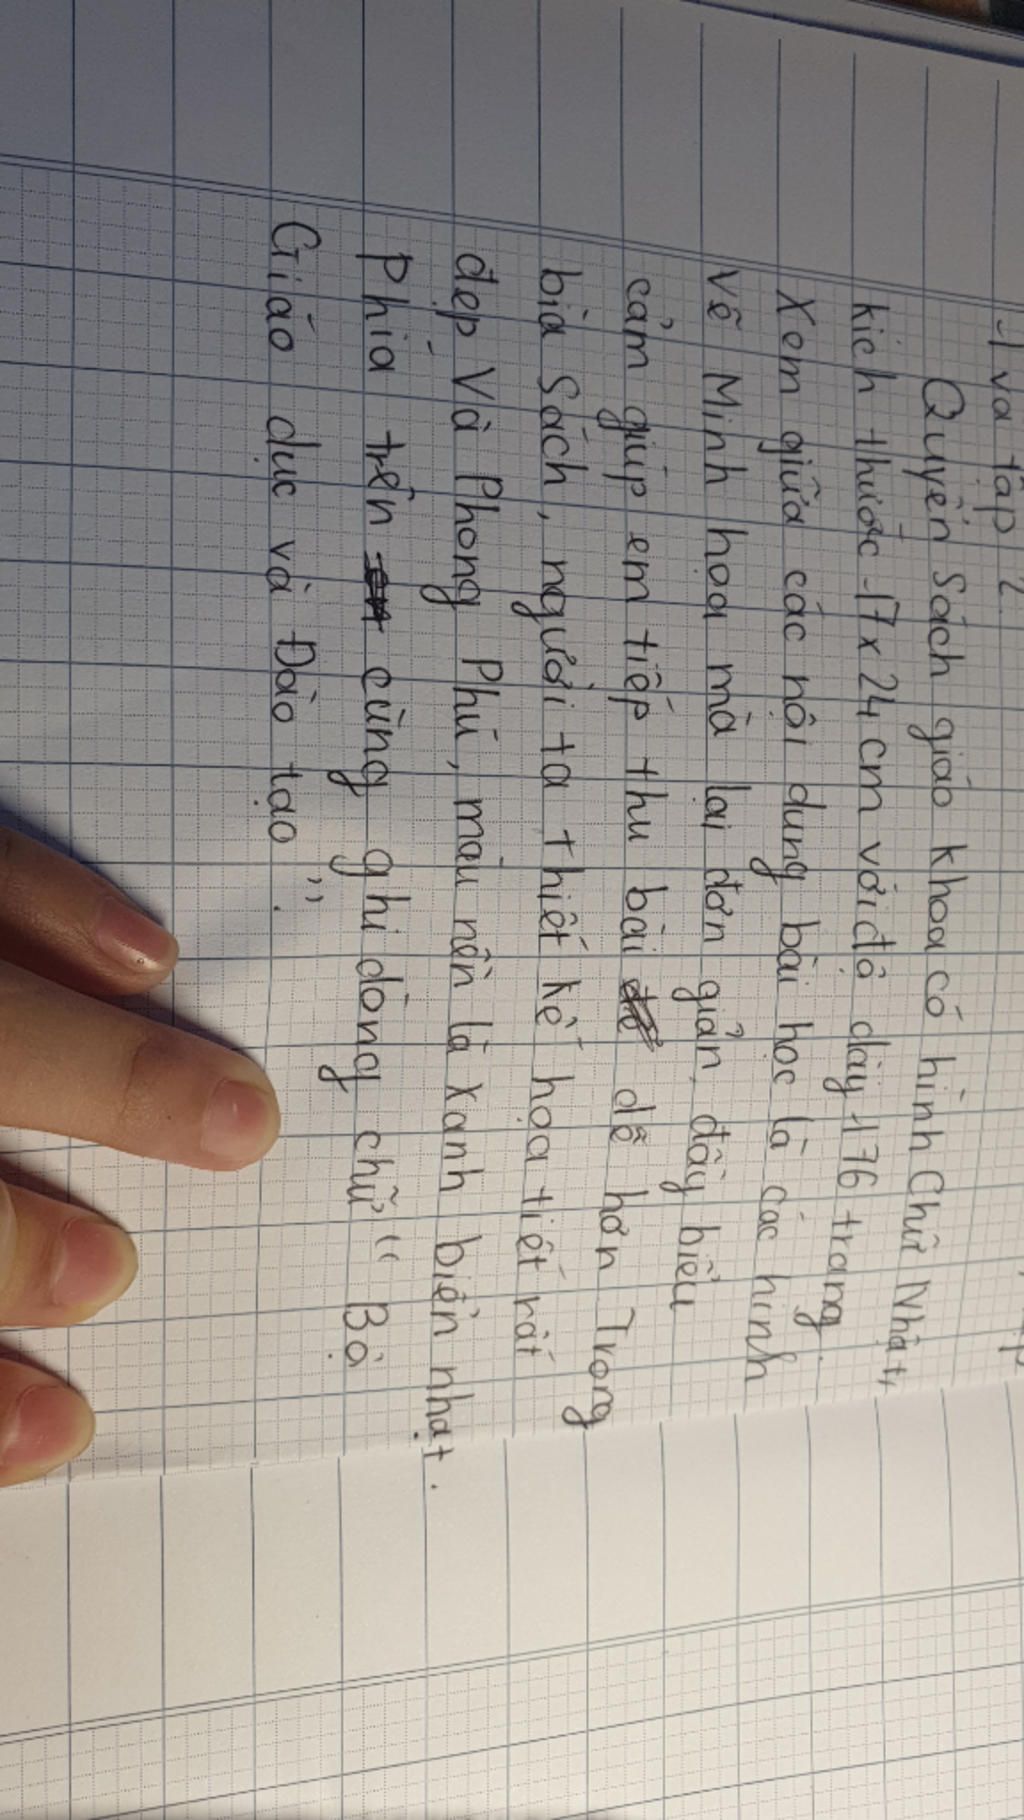 1 và tập 2.
Quyển Sách giáo khoa có hình Chữ Nhật,
kích thước 17 x 24 cm với độ dày 176 trang.
Xem giữa các nội dung bài học là các hình
vẽ Minh họa mà lại đơn giản, đầy biểu
cảm giúp em tiếp thu bài dễ hơn Trong
bìa Sách, người ta thiết kế họa tiết rất
đẹp Và Phong Phú, màu nền là xanh biển nhạt.
Phía trên cùng ghi dòng chữ " Bộ
Giáo dục và Đào tạo ".